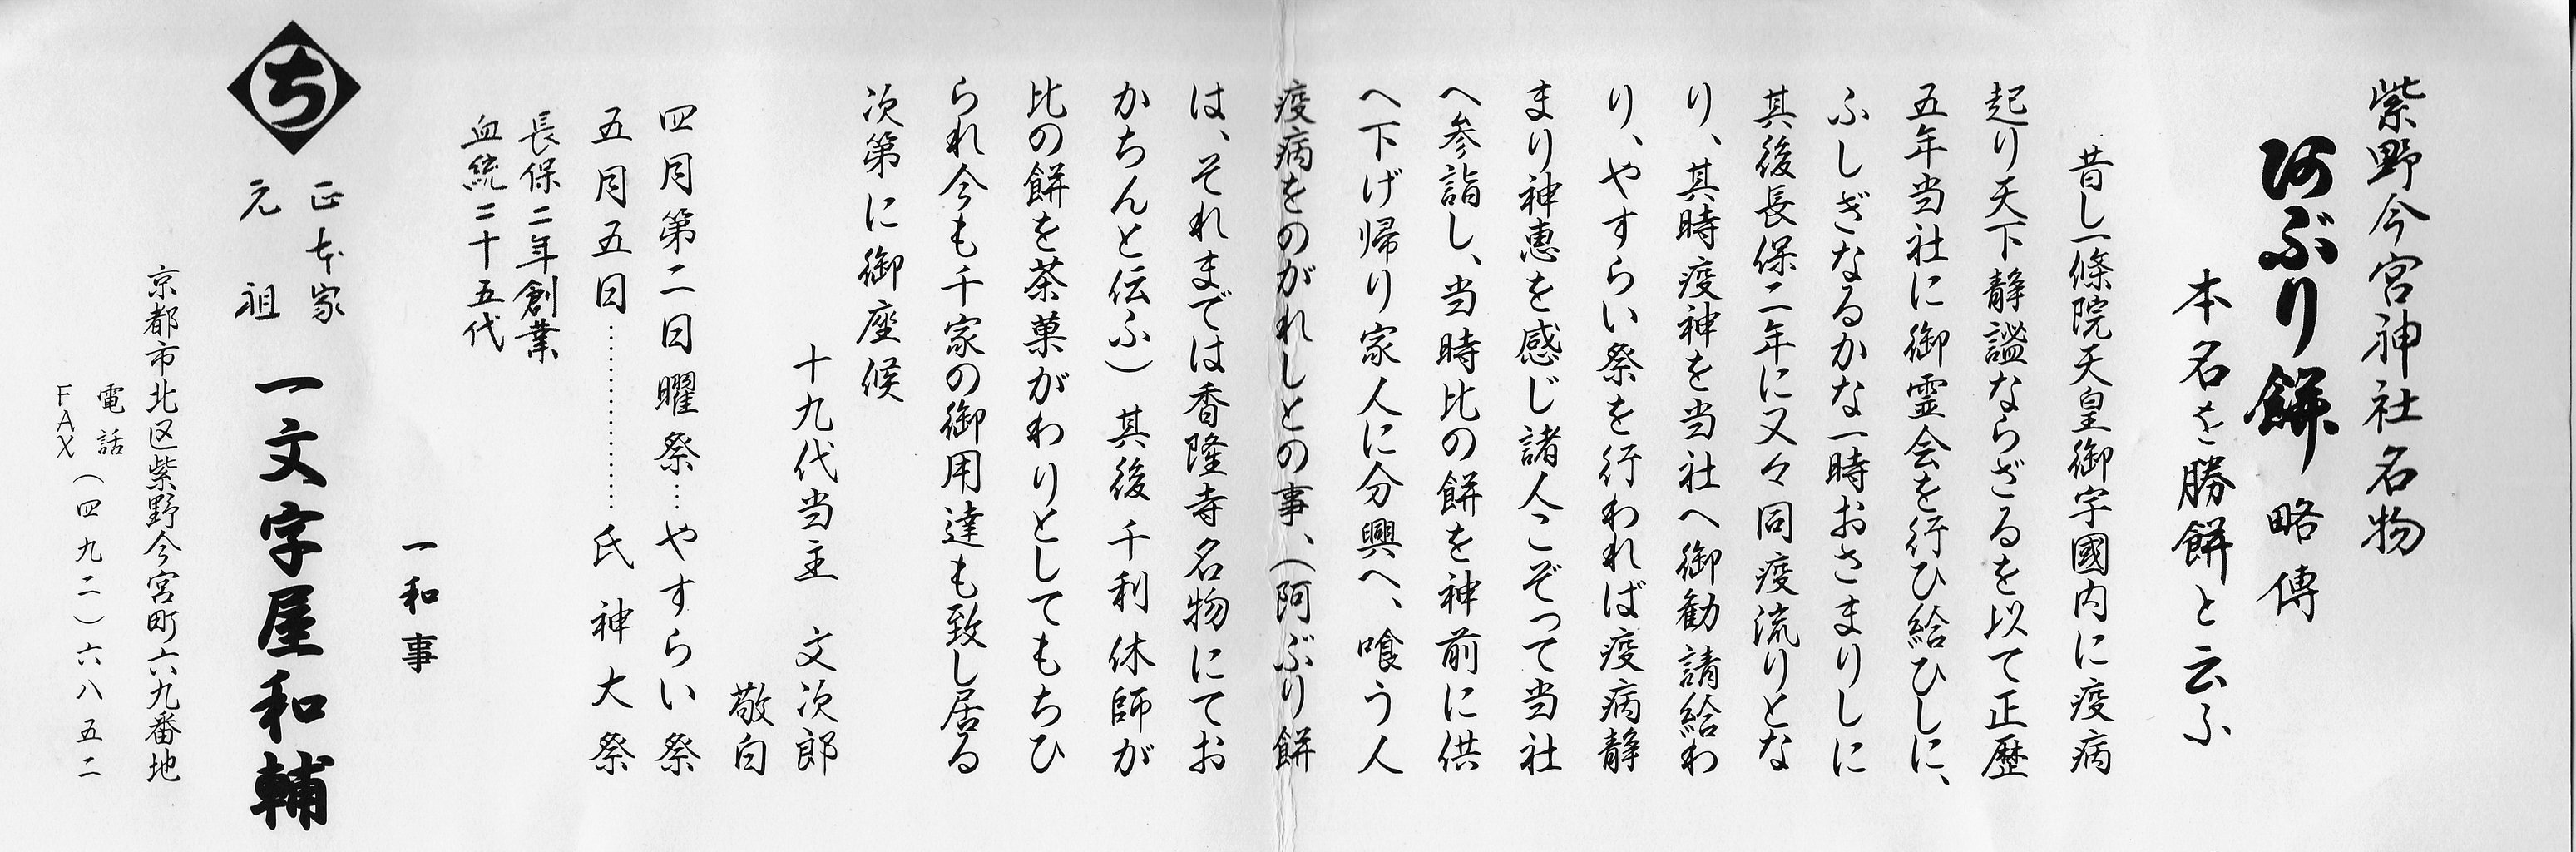 紫野今宮神社名物
阿ぶり餅 略傳
本名を勝餅と云ふ
昔し一條院天皇御宇國内に疫病
起り天下静謐ならざるを以て正歴
五年当社に御霊会を行ひ給ひしに、
ふしぎなるかな一時おさまりしに
其後長保二年に又々同疫流りとな
り、其時疫神を当社へ御勧請給わ
り、やすらい祭を行われば疫病静
まり神恵を感じ諸人こぞって当社
へ参詣し、当時比の餅を神前に供
へ下げ帰り家人に分興へ、喰う人
疫病をのがれしとの事、(阿ぶり餅
は、それまでは香隆寺名物にてお
かちんと伝ふ) 其後千利休師が
比の餅を茶菓がわりとしてもちひ
られ今も千家の御用達も致し居る
次第に御座候
十九代当主 文次郎
敬白
四月第二日曜祭…やすらい祭
五月五日…………氏神大祭
長保二年創業
血統二十五代
一和事
ち
正本家
元祖
一文字屋和輔
京都市北区紫野今宮町六九番地
電話
FAX
(四九二)六八五二